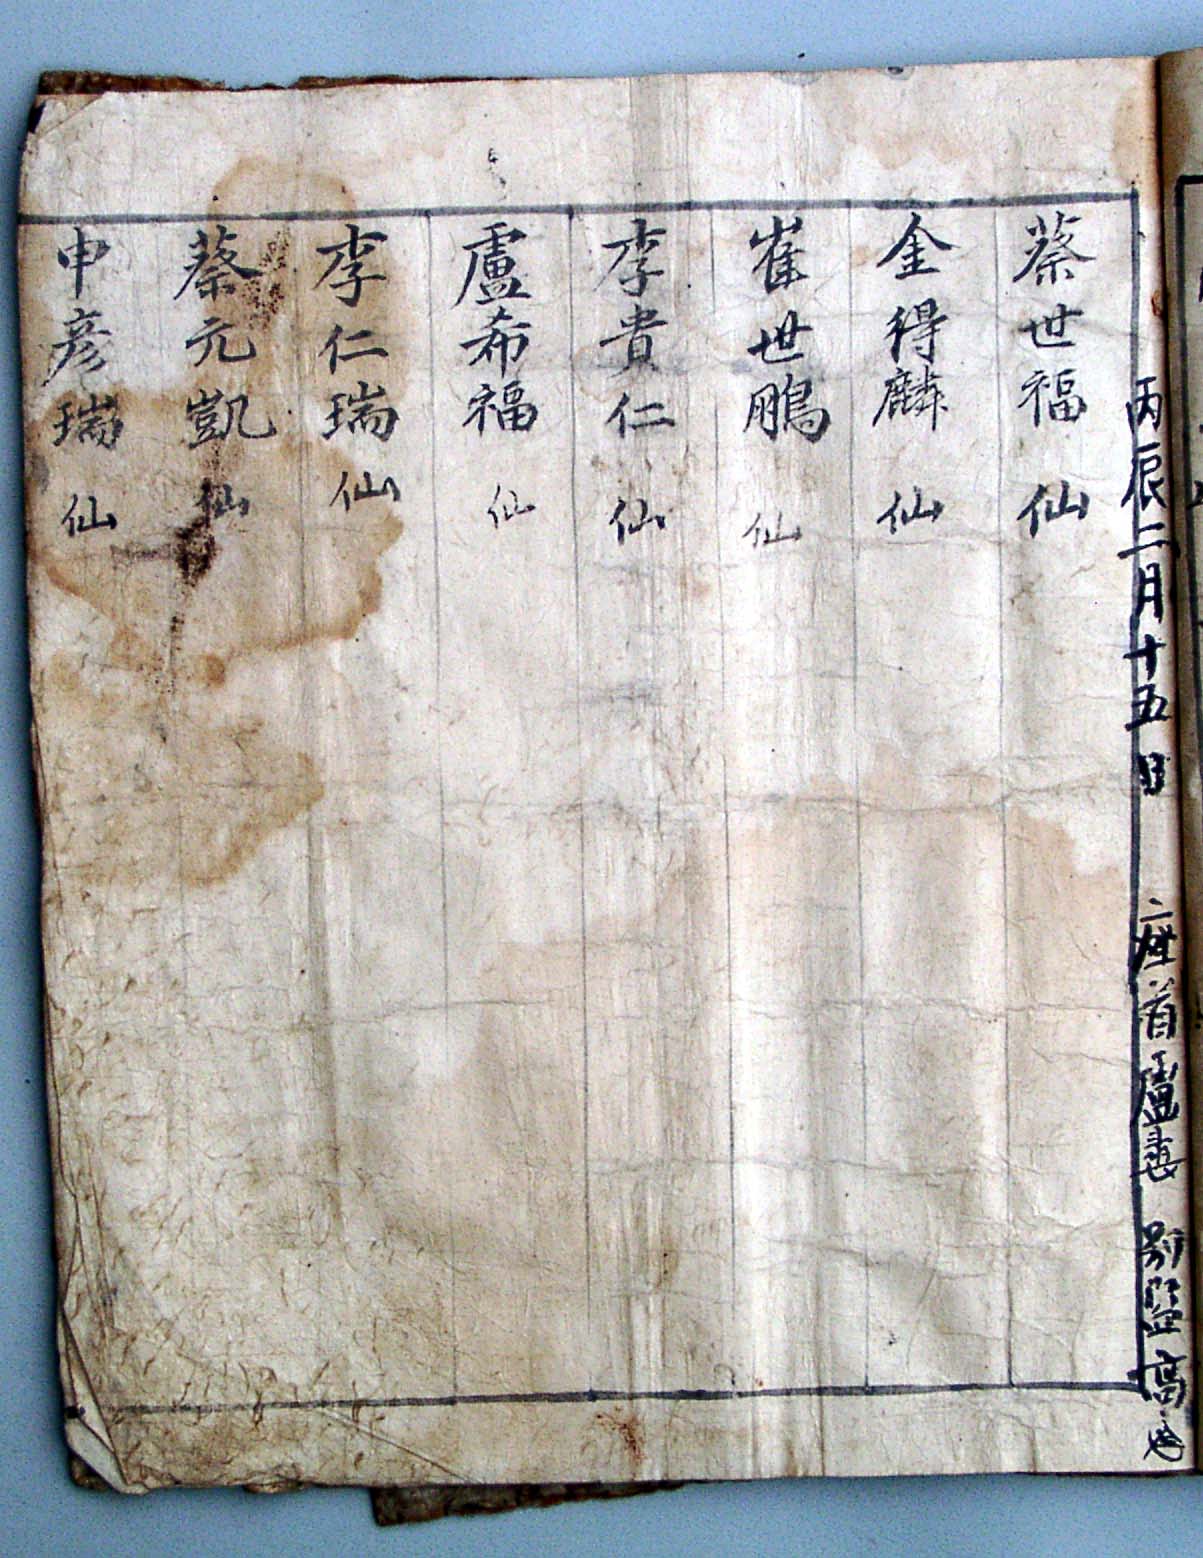 丙辰二月十五日 座首盧 別監
蔡世福 仙
金得麟 仙
崔世鵬 仙
李貴仁 仙
盧希福 仙
李仁瑞 仙
蔡元凱 仙
申彦瑞 仙